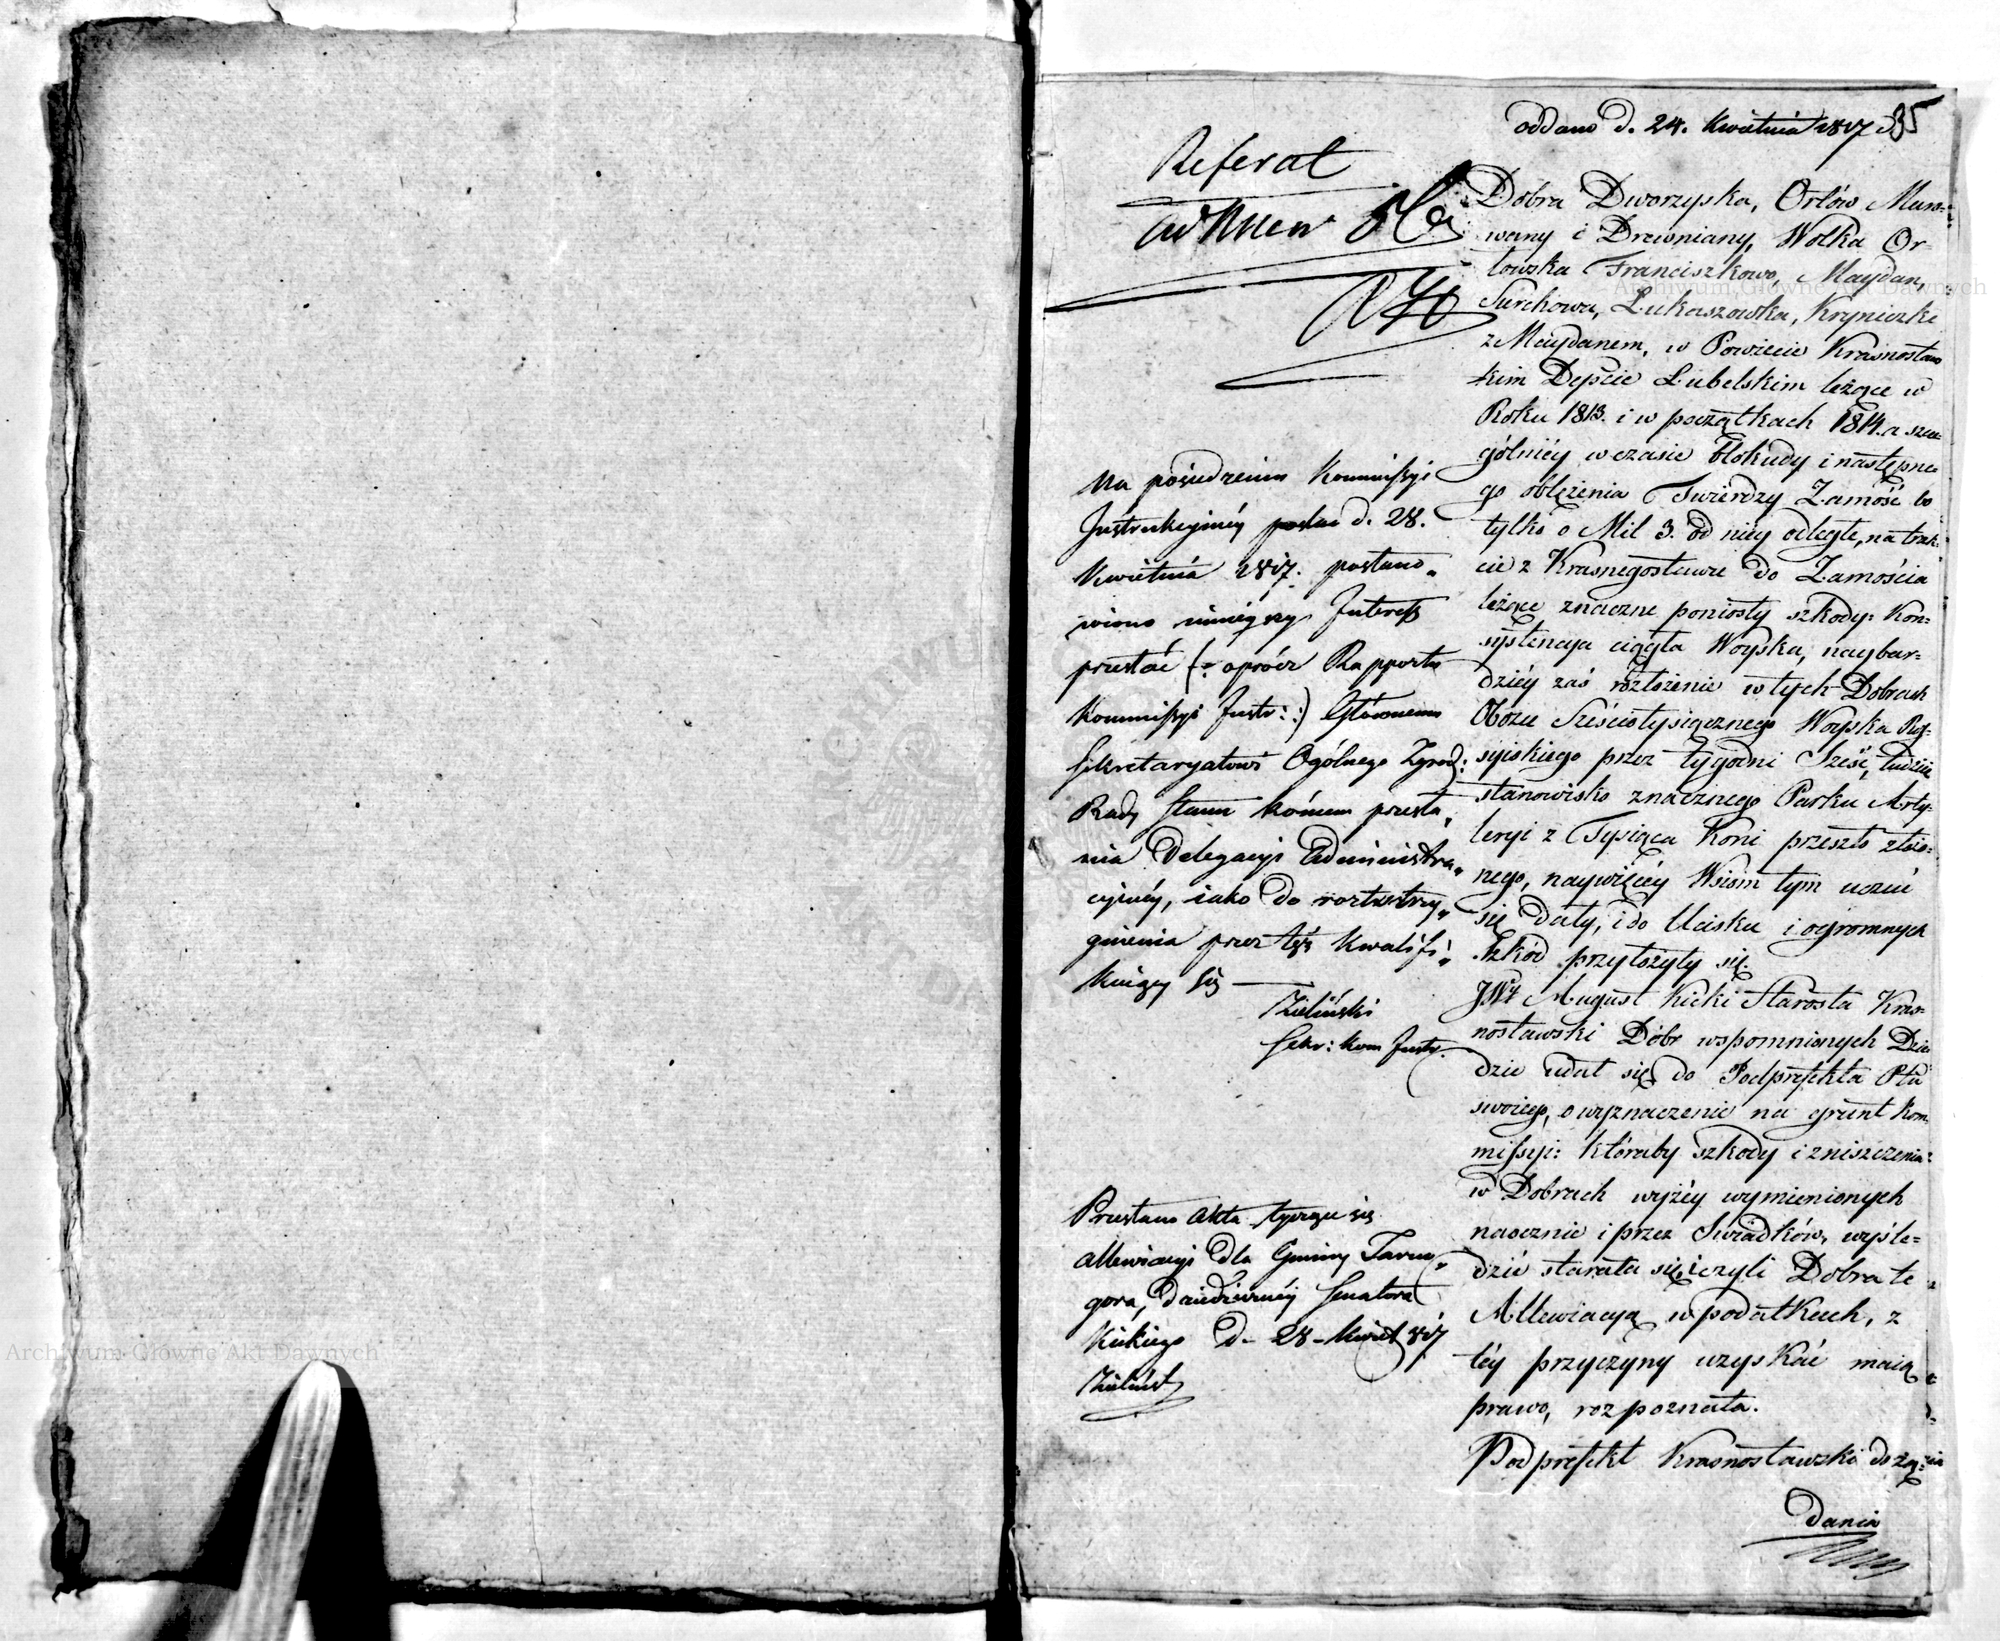 oddano d. 24. Kwietnia 1817
35
Referat
Dobra Dworzyska, Orłów Muro-
wany i Drewniany, Wolka Or-
łowska Franciszkowo, Maydan,
Surchowa, Łukaszowska, Kryniczki
z Maydanem, w Powiecie Krasnostaw
skim Depcie Lubelskim leżące w
Roku 1813. i w początkach 1814. a szcze-
gólniéy w czasie Blokady i następne
go oblężenia Twierdzy Zamość bo
tylko o Mil 3. od niéy odległe, na trak-
cie z Krasnegostawu do Zamościa
leżące znaczne poniosły szkody: Kon-
systencya ciągła Woyska, naybar-
dziéy zaś rozłożenie w tych Dobrach
Obozu Sześciotysiącznego Woyska Ros-
syiskiego przez tygodni Sześć, tudzież
stanowisko znacznego Parku Arty-
leryi z Tysiąca Koni przeszło złożo-
nego, naywięcéy Wsiom tym uczuć
się dały, i do Ucisku i ogromnych
Szkód przyłożyły się.
JW August Kicki Starosta Kras-
nostawski Dóbr wspomnionych Dzie
dzic udał się do Podprefekta Ptu
swoiego, o wyznaczenie na grunt Kom
missyi: któraby szkody i zniszczenia
w Dobrach wyżéy wymienionych
naocznie i przez Swiadków, wyśle-
dzić starała się i czyli Dobra te
Allewiacyą w podatkach, z
téy przyczyny uzyskać maią
prawo, rozpoznała.
Podprefekt Krasnostawski do zą-
dania
Na posiedzeniu Kommissyi
Instrukcyinéy d. 28.
Kwietnia 1817. postano-
wiono ninieyszy Interess
przesłać (: oprócz Rapportu
Kommissyi Instr: :) Głównemu
Sekretaryatowi Ogólnego Zgrod:
Rady Stanu końcem przesła-
nia Delegacyi Administra-
cyinéy, iako do roztrzstrzy-
gnienia przez téż kwalifi-
kuiący się
Zieliński
Sekr: Kom Instr.
Przesłano Akta tyczące się
Allewiacyi dla Gminy Tarno-
gora, dziedzicznéy Senatora
Kickiego d. 28 Kwiet 817
Zieliński
Archiwum Główne Akt Dawnych
Archiwum Główne Akt Dawnych